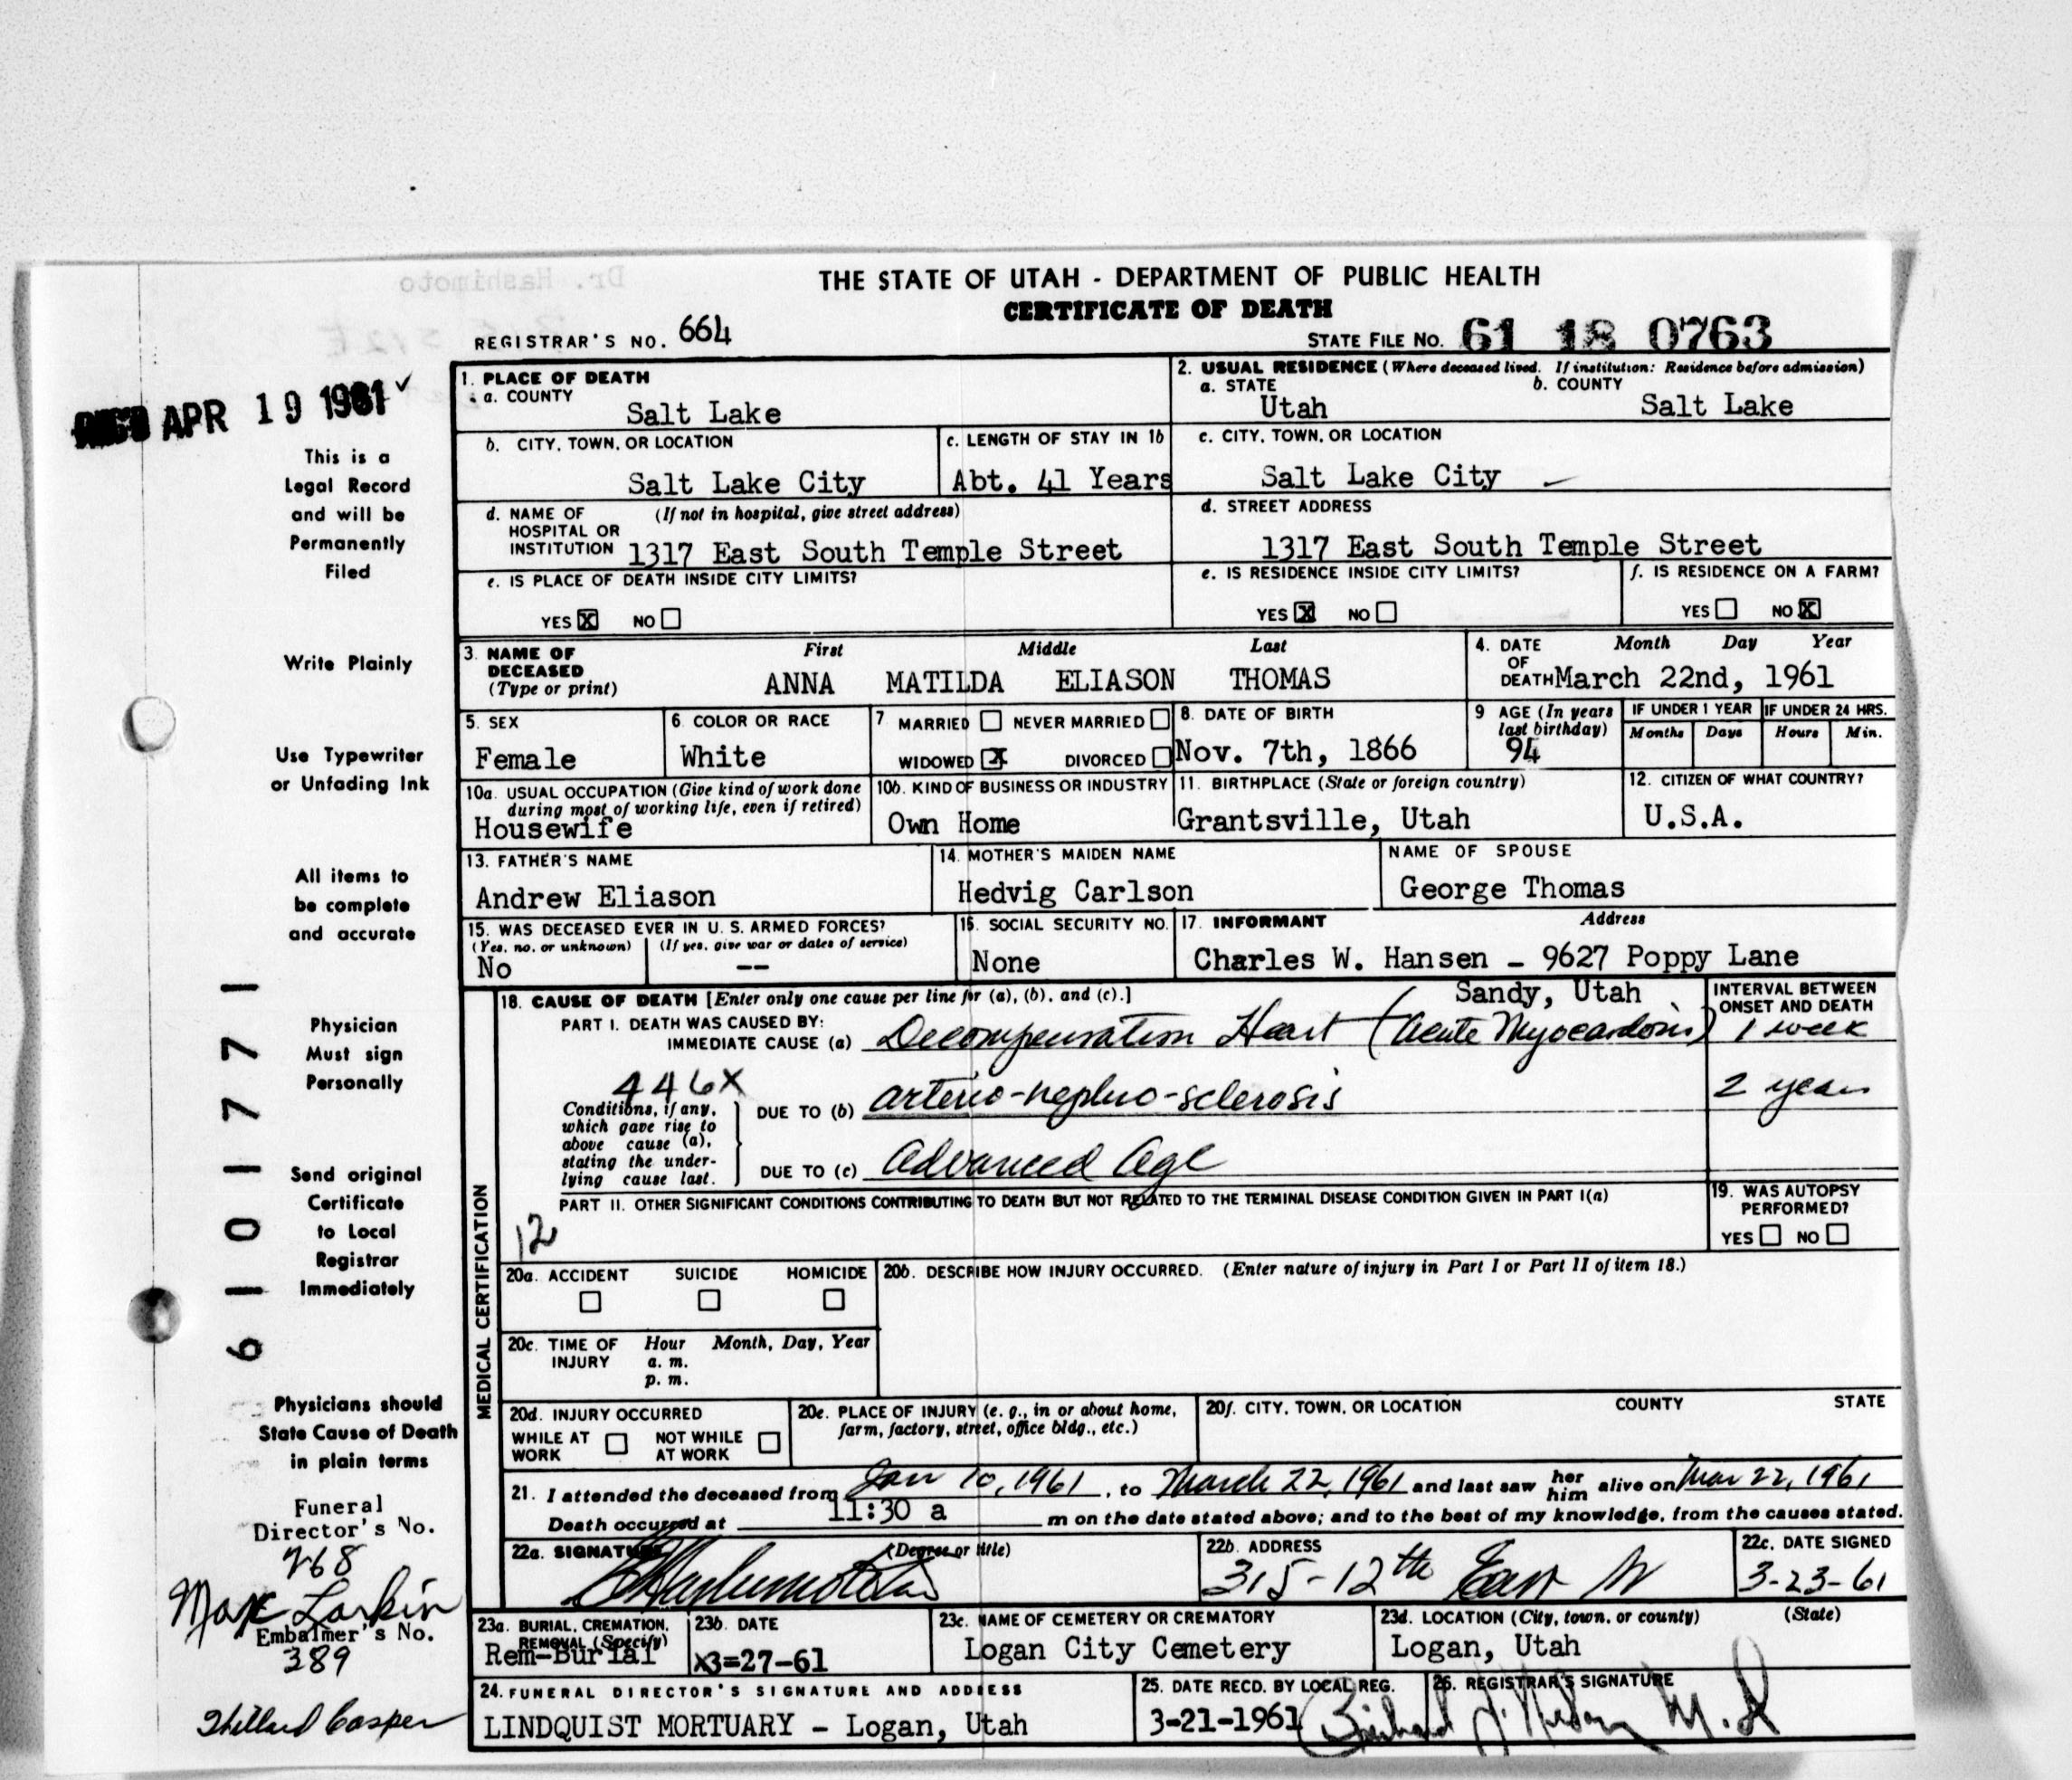 Dr. Hashimoto
THE STATE OF UTAH - DEPARTMENT OF PUBLIC HEALTH
CERTIFICATE OF DEATH
REGISTRAR'S NO. 664
STATE FILE NO. 61 18 0763
REC'D APR 19 1961
This is a
Legal Record
and will be
Permanently
Filed
Write Plainly
Use Typewriter
or Unfading Ink
All items to
be complete
and accurate
Physician
Must sign
Personally
Send original
Certificate
to Local
Registrar
Immediately
Physicians should
State Cause of Death
in plain terms
Funeral
Director's No.
768
Max Larkin
Embalmer's No.
389
Casper
6101771
1. PLACE OF DEATH
a. COUNTY
Salt Lake
2. USUAL RESIDENCE (Where deceased lived. If institution: Residence before admission)
a. STATE b. COUNTY
Utah Salt Lake
b. CITY, TOWN, OR LOCATION
Salt Lake City
c. LENGTH OF STAY IN 1b
Abt. 41 Years
c. CITY, TOWN, OR LOCATION
Salt Lake City
d. NAME OF (If not in hospital, give street address)
HOSPITAL OR
INSTITUTION 1317 East South Temple Street
d. STREET ADDRESS
1317 East South Temple Street
e. IS PLACE OF DEATH INSIDE CITY LIMITS?
YES X NO
e. IS RESIDENCE INSIDE CITY LIMITS?
YES X NO
f. IS RESIDENCE ON A FARM?
YES NO X
3. NAME OF First Middle Last
DECEASED
(Type or print) ANNA MATILDA ELIASON THOMAS
4. DATE Month Day Year
OF
DEATH March 22nd, 1961
5. SEX
Female
6. COLOR OR RACE
White
7 MARRIED NEVER MARRIED
WIDOWED X DIVORCED
8. DATE OF BIRTH
Nov. 7th, 1866
9 AGE (In years
last birthday)
94
IF UNDER 1 YEAR
Months Days
IF UNDER 24 HRS.
Hours Min.
10a. USUAL OCCUPATION (Give kind of work done
during most of working life, even if retired)
Housewife
10b. KIND OF BUSINESS OR INDUSTRY
Own Home
11. BIRTHPLACE (State or foreign country)
Grantsville, Utah
12. CITIZEN OF WHAT COUNTRY?
U.S.A.
13. FATHER'S NAME
Andrew Eliason
14. MOTHER'S MAIDEN NAME
Hedvig Carlson
NAME OF SPOUSE
George Thomas
15. WAS DECEASED EVER IN U. S. ARMED FORCES?
(Yes, no, or unknown) (If yes, give war or dates of service)
No --
16. SOCIAL SECURITY NO.
None
17. INFORMANT Address
Charles W. Hansen - 9627 Poppy Lane
Sandy, Utah
MEDICAL CERTIFICATION
18. CAUSE OF DEATH [Enter only one cause per line for (a), (b), and (c).]
INTERVAL BETWEEN
ONSET AND DEATH
PART I. DEATH WAS CAUSED BY:
IMMEDIATE CAUSE (a) Decompensation Heart (Acute Myocardosis) 1 week
446X
Conditions, if any,
which gave rise to
above cause (a),
stating the under-
lying cause last.
DUE TO (b) arterio-nephro-sclerosis 2 years
DUE TO (c) Advanced Age
PART II. OTHER SIGNIFICANT CONDITIONS CONTRIBUTING TO DEATH BUT NOT RELATED TO THE TERMINAL DISEASE CONDITION GIVEN IN PART I(a)
12
19. WAS AUTOPSY
PERFORMED?
YES NO
20a. ACCIDENT SUICIDE HOMICIDE
20b. DESCRIBE HOW INJURY OCCURRED. (Enter nature of injury in Part I or Part II of item 18.)
20c. TIME OF Hour Month, Day, Year
INJURY a. m.
p. m.
20d. INJURY OCCURRED
WHILE AT NOT WHILE
WORK AT WORK
20e. PLACE OF INJURY (e. g., in or about home,
farm, factory, street, office bldg., etc.)
20f. CITY, TOWN, OR LOCATION COUNTY STATE
21. I attended the deceased from Jan 10, 1961, to March 22, 1961 and last saw her him alive on Mar 22, 1961
Death occurred at 11:30 a m on the date stated above; and to the best of my knowledge, from the causes stated.
22a. SIGNATURE (Degree or title)
22b. ADDRESS
315-12th East
22c. DATE SIGNED
3-23-61
23a. BURIAL, CREMATION,
REMOVAL (Specify)
Rem-Burial
23b. DATE
x3=27-61
23c. NAME OF CEMETERY OR CREMATORY
Logan City Cemetery
23d. LOCATION (City, town, or county) (State)
Logan, Utah
24. FUNERAL DIRECTOR'S SIGNATURE AND ADDRESS
LINDQUIST MORTUARY - Logan, Utah
25. DATE RECD. BY LOCAL REG.
3-21-1961
26. REGISTRAR'S SIGNATURE